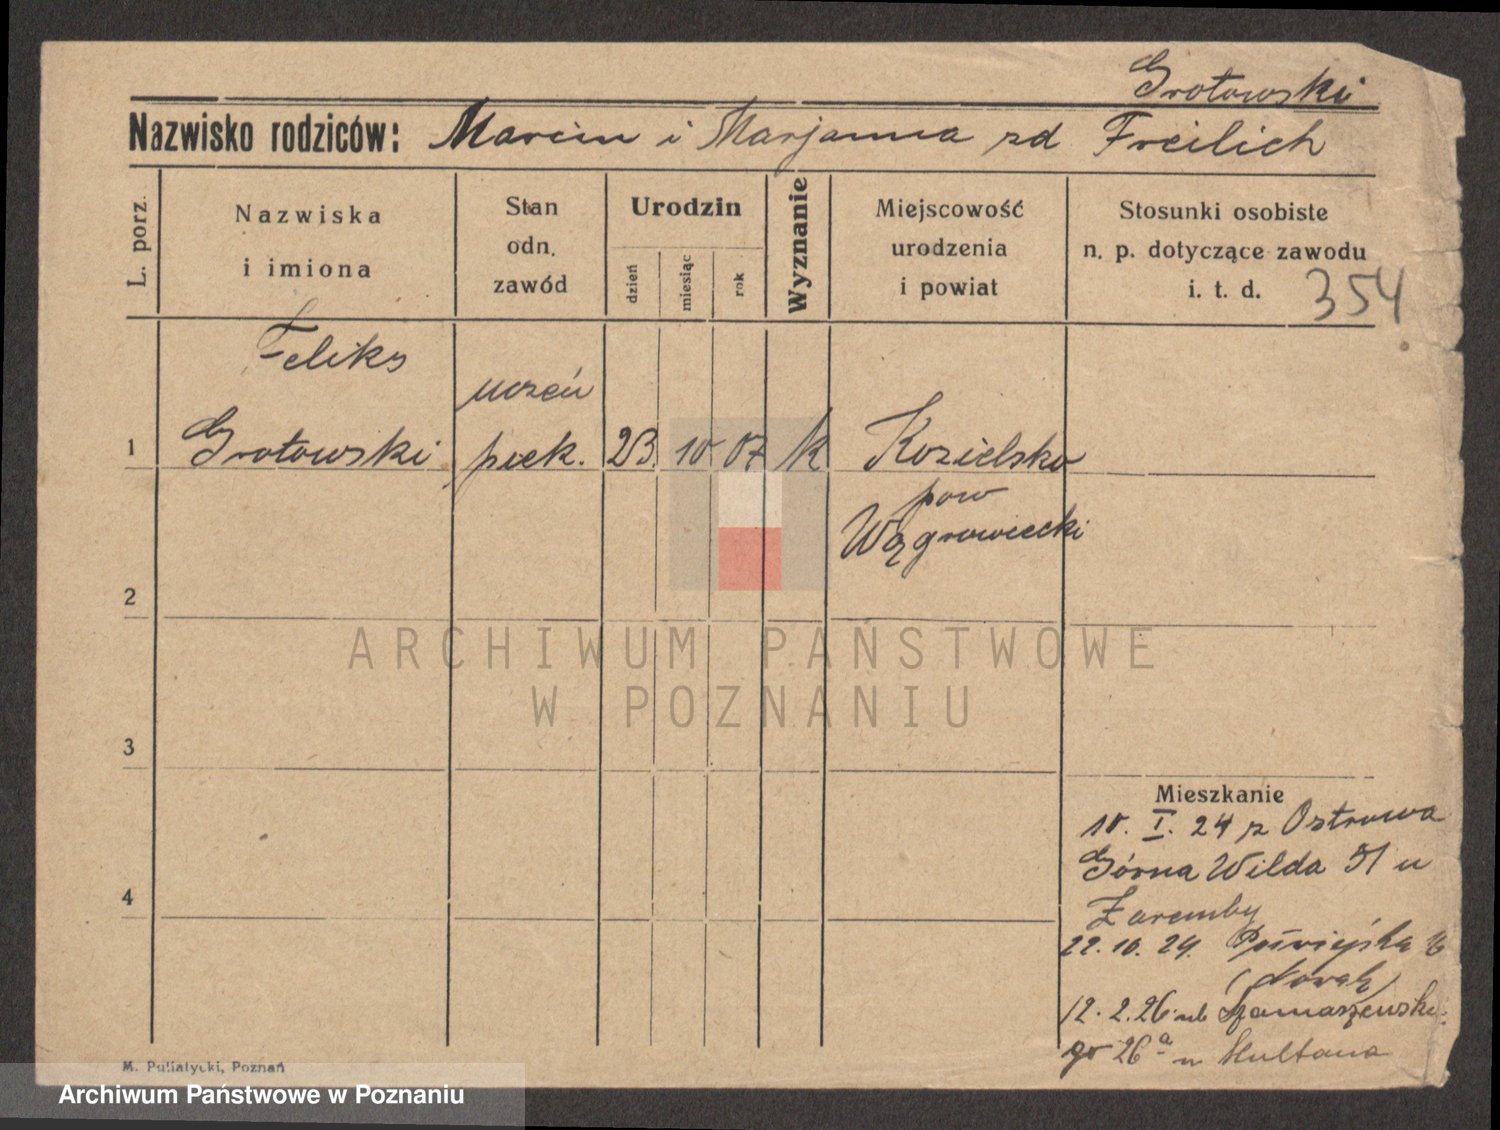 Grotowski
Nazwisko rodziców: Marcin i Marjanna zd Freilich
L. porz.
Nazwiska
i imiona
Stan
odn.
zawód
Urodzin
dzień
miesiąc
rok
Wyznanie
Miejscowość
urodzenia
i powiat
Stosunki osobiste
n. p. dotyczące zawodu
i. t. d.
354
Feliks
uczeń
1 Grotowski piek. 23. 10 07 k Kozielsko
pow
Wągrowiecki
2
ARCHIWUM PAŃSTWOWE
W POZNANIU
3
Mieszkanie
10. I. 24 z Ostrowa
Górna Wilda 51 u
4
Zaremby
22. 10. 24.
(Nowak)
12. 2. 26 ul Szamarzewski-
go 26a u Hultana
M. Pullatycki, Poznań
Archiwum Państwowe w Poznaniu